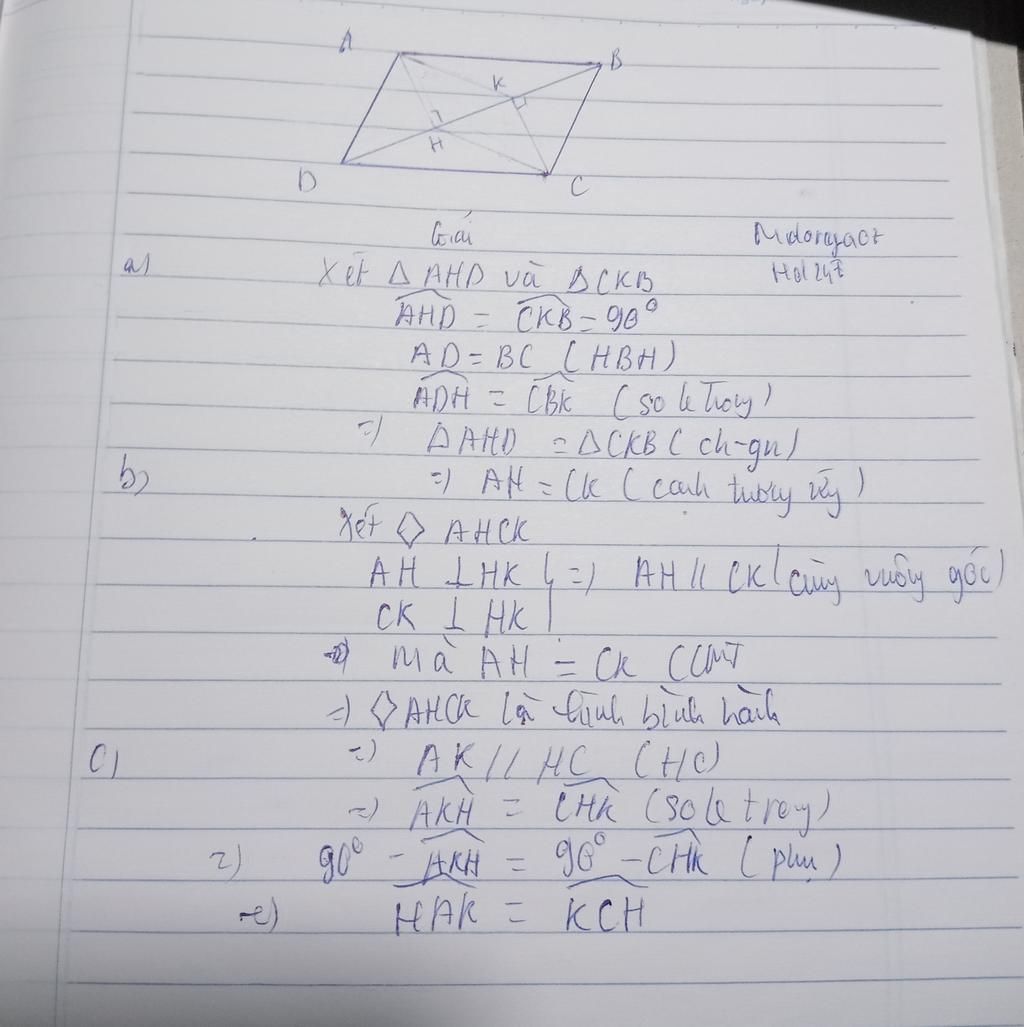 A
B
K
H
D
C
Giải
a) Xét ΔAHD và ΔCKB
AHD = CKB = 90°
AD = BC (HBH)
ADH = CBK (so le trong)
=) ΔAHD = ΔCKB (ch-gn)
b) =) AH = CK (cạnh tương ứng)
Xét ◇ AHCK
AH ⊥ HK } =) AH // CK (cùng vuông góc)
CK ⊥ HK
=) Mà AH = CK (CMT
=) ◇AHCK là hình bình hành
c) =) AK // HC (HC)
=) AKH = CHK (so le trong)
=) 90° - AKH = 90° - CHK (phụ)
=) HAK = KCH